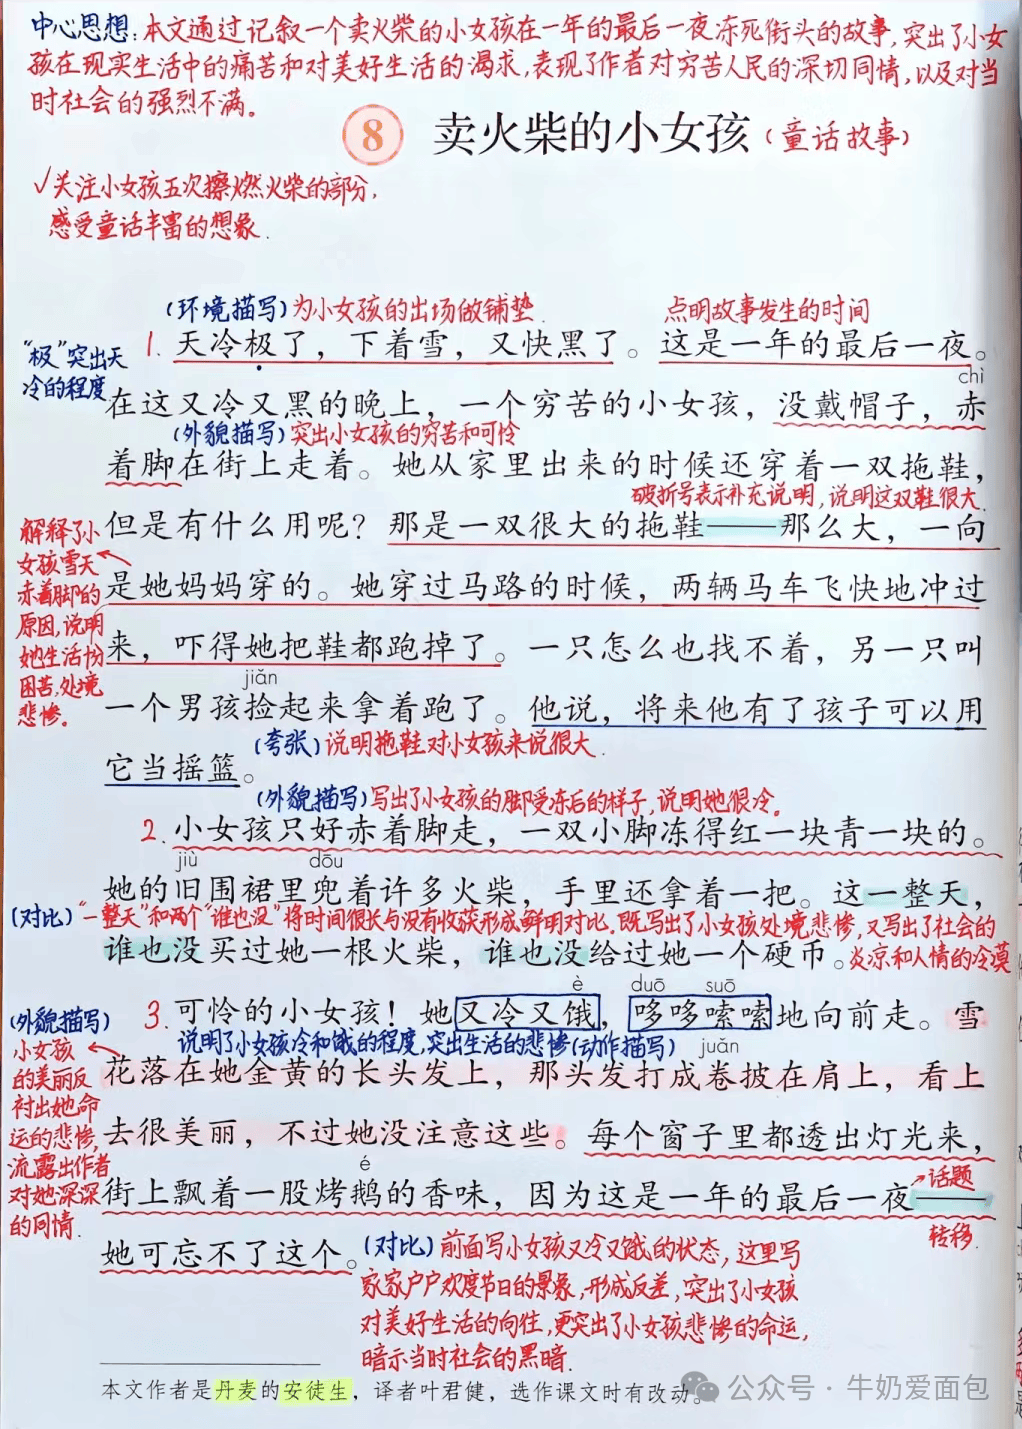 中心思想:本文通过记叙一个卖火柴的小女孩在一年的最后一夜冻死街头的故事,突出了小女
孩在现实生活中的痛苦和对美好生活的渴求,表现了作者对穷苦人民的深切同情,以及对当
时社会的强烈不满。
8 卖火柴的小女孩(童话故事)
√关注小女孩五次擦燃火柴的部分,
感受童话丰富的想象.
(环境描写)为小女孩的出场做铺垫. 点明故事发生的时间
"极"突出天
冷的程度
1. 天冷极了，下着雪，又快黑了。这是一年的最后一夜。
chì
在这又冷又黑的晚上，一个穷苦的小女孩，没戴帽子，赤
(外貌描写)突出小女孩的穷苦和可怜
着脚在街上走着。她从家里出来的时候还穿着一双拖鞋，
破折号表示补充说明,说明这双鞋很大.
但是有什么用呢？那是一双很大的拖鞋——那么大，一向
解释了小
女孩雪天
赤着脚的
原因,说明
她生活穷
困苦,处境
悲惨。
是她妈妈穿的。她穿过马路的时候，两辆马车飞快地冲过
来，吓得她把鞋都跑掉了。一只怎么也找不着，另一只叫
jiǎn
一个男孩捡起来拿着跑了。他说，将来他有了孩子可以用
(夸张)说明拖鞋对小女孩来说很大.
它当摇篮。
(外貌描写)写出了小女孩的脚受冻后的样子,说明她很冷。
2. 小女孩只好赤着脚走，一双小脚冻得红一块青一块的。
jiù dōu
她的旧围裙里兜着许多火柴，手里还拿着一把。这一整天，
(对比)"一整天"和两个"谁也没"将时间很长与没有收获形成鲜明对比。既写出了小女孩处境悲惨,又写出了社会的
谁也没买过她一根火柴，谁也没给过她一个硬币。炎凉和人情的冷漠
è duō suō
3. 可怜的小女孩！她又冷又饿，哆哆嗦嗦地向前走。雪
说明了小女孩冷和饿的程度,突出生活的悲惨(动作描写) juǎn
(外貌描写)
小女孩
的美丽反
衬出她命
运的悲惨,
流露出作者
对她深深
的同情.
花落在她金黄的长头发上，那头发打成卷披在肩上，看上
去很美丽，不过她没注意这些。每个窗子里都透出灯光来，
é
街上飘着一股烤鹅的香味，因为这是一年的最后一夜——
话题
转移.
她可忘不了这个。
(对比)前面写小女孩又冷又饿的状态,这里写
家家户户欢度节日的景象,形成反差,突出了小女孩
对美好生活的向往,更突出了小女孩悲惨的命运,
暗示当时社会的黑暗.
本文作者是丹麦的安徒生，译者叶君健，选作课文时有改动。
公众号·牛奶爱面包